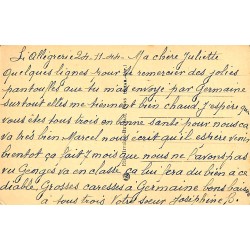 L'Allégrerie 24-11-44- Ma chère Juliette
Quelques lignes pour te remercier des jolies
pantoufles que tu m'as envoyé par Germaine
surtout elles me tiennent bien chaud. J'espère que
vous êtes tous trois en bonne santé pour nous ca
va tres bien Marcel nous écrit qu'il espère venir
bientot ça fait 7 mois que nous ne l'avons pas
vu Georges va en classe ça lui fera du bien a ce
diable. Grosses caresses a Germaine bons baisers
a tous trois Votre sœur Josephine B.